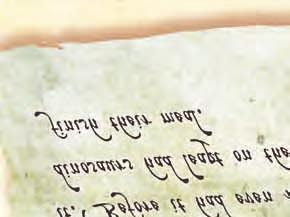 it. Before it had even
dinosaurs had leapt on the
finish their meal.